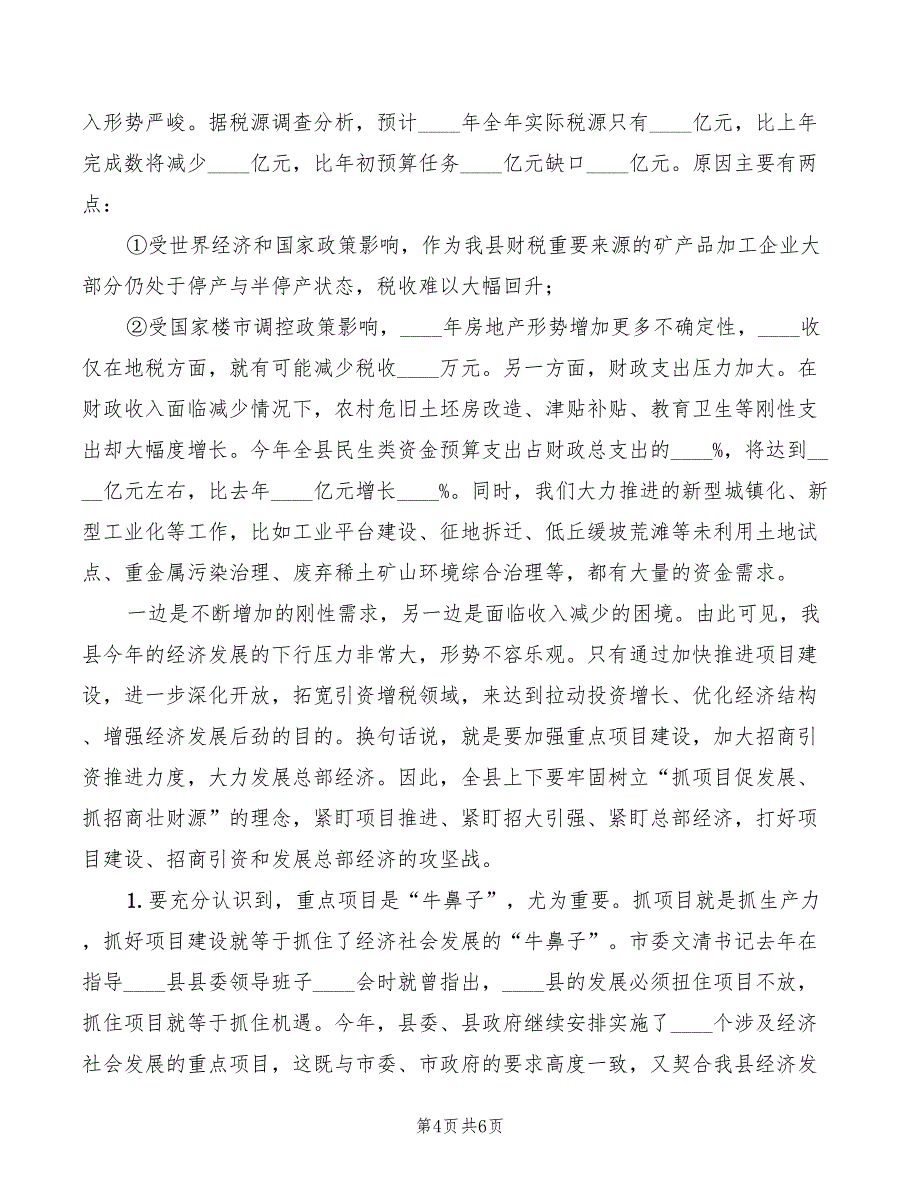 入形势严峻。据税源调查分析，预计____年全年实际税源只有____亿元，比上年
完成数将减少____亿元，比年初预算任务____亿元缺口____亿元。原因主要有两
点：
①受世界经济和国家政策影响，作为我县财税重要来源的矿产品加工企业大
部分仍处于停产与半停产状态，税收难以大幅回升；
②受国家楼市调控政策影响，____年房地产形势增加更多不确定性，____收
仅在地税方面，就有可能减少税收____万元。另一方面，财政支出压力加大。在
财政收入面临减少情况下，农村危旧土坯房改造、津贴补贴、教育卫生等刚性支
出却大幅度增长。今年全县民生类资金预算支出占财政总支出的____%，将达到__
__亿元左右，比去年____亿元增长____%。同时，我们大力推进的新型城镇化、新
型工业化等工作，比如工业平台建设、征地拆迁、低丘缓坡荒滩等未利用土地试
点、重金属污染治理、废弃稀土矿山环境综合治理等，都有大量的资金需求。
一边是不断增加的刚性需求，另一边是面临收入减少的困境。由此可见，我
县今年的经济发展的下行压力非常大，形势不容乐观。只有通过加快推进项目建
设，进一步深化开放，拓宽引资增税领域，来达到拉动投资增长、优化经济结构
、增强经济发展后劲的目的。换句话说，就是要加强重点项目建设，加大招商引
资推进力度，大力发展总部经济。因此，全县上下要牢固树立“抓项目促发展、
抓招商壮财源”的理念，紧盯项目推进、紧盯招大引强、紧盯总部经济，打好项
目建设、招商引资和发展总部经济的攻坚战。
1.要充分认识到，重点项目是“牛鼻子”，尤为重要。抓项目就是抓生产力
，抓好项目建设就等于抓住了经济社会发展的“牛鼻子”。市委文清书记去年在
指导____县县委领导班子____会时就曾指出，____县的发展必须扭住项目不放，
抓住项目就等于抓住机遇。今年，县委、县政府继续安排实施了____个涉及经济
社会发展的重点项目，这既与市委、市政府的要求高度一致，又契合我县经济发
第4页共6页